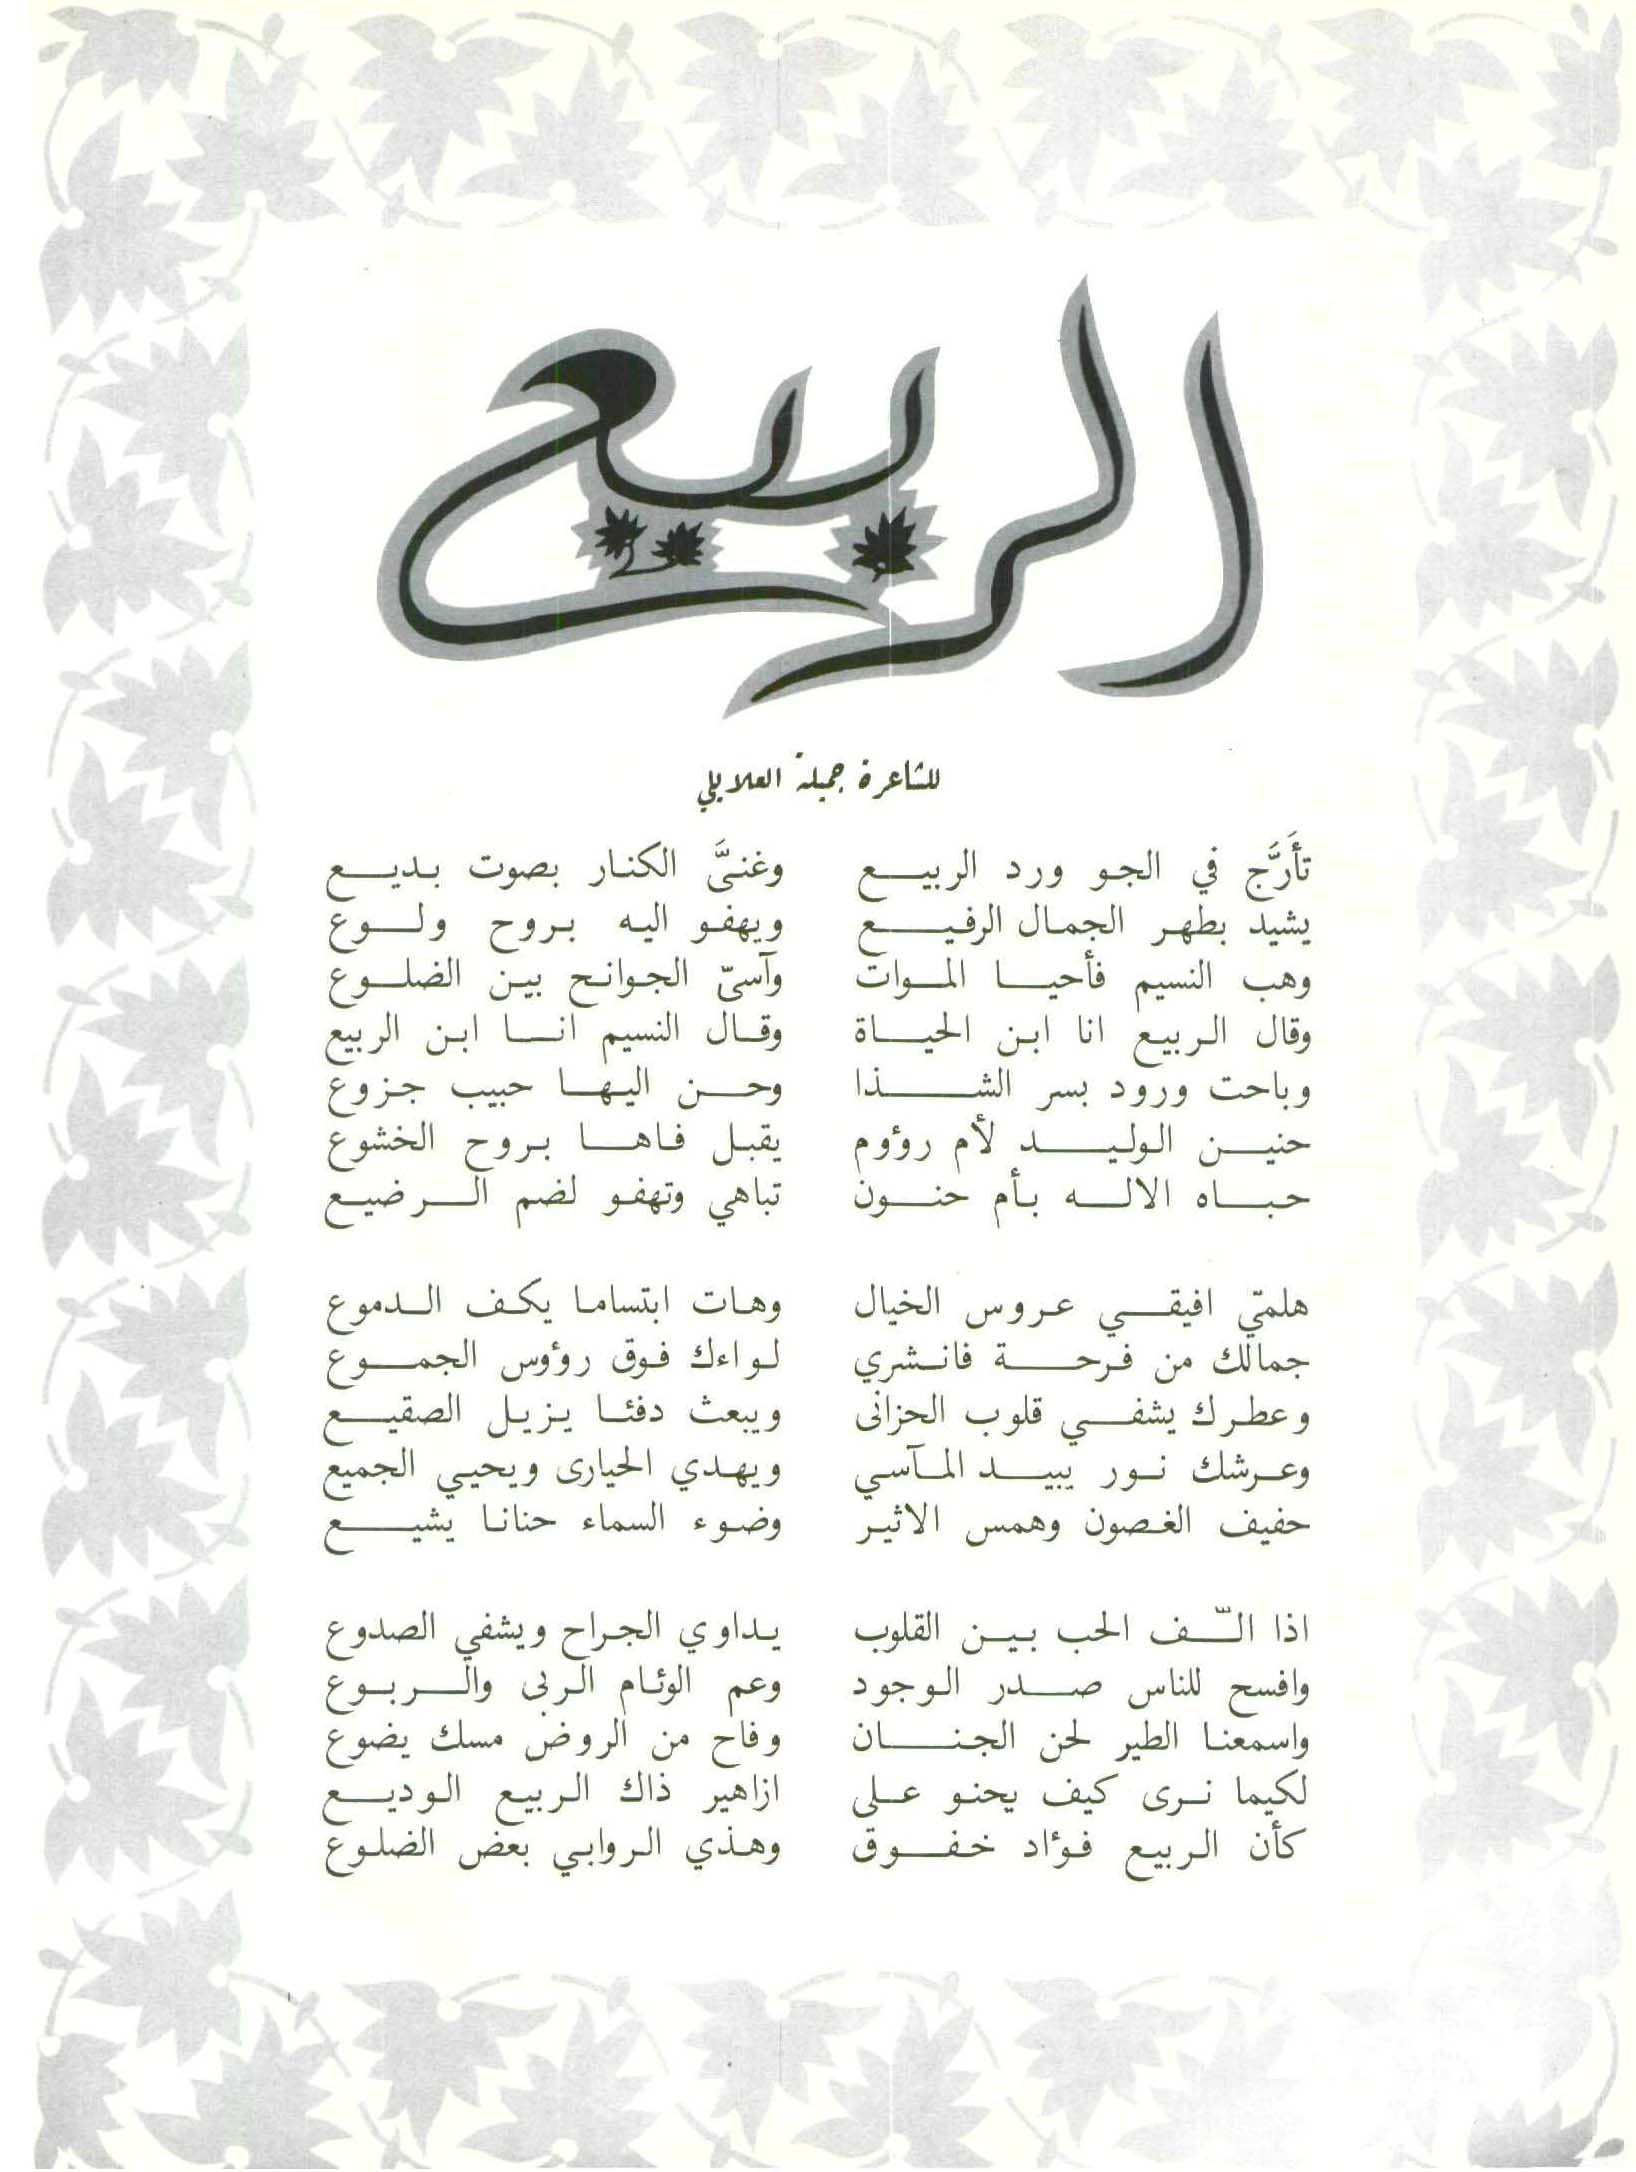 الربيع
للشاعرة جميلة العلايلي
تأَرَّج في الجو ورد الربيع وغنىَّ الكنار بصوت بديع
يشيد بطهر الجمال الرفيع ويهفو اليه بروح ولوع
وهب النسيم فأحيا الموات وآسىّ الجوانح بين الضلوع
وقال الربيع انا ابن الحياة وقال النسيم انا ابن الربيع
وباحت ورود بسر الشذا وحن اليها حبيب جزوع
حنين الوليد لأم رؤوم يقبل فاها بروح الخشوع
حباه الاله بأم حنون تباهي وتهفو لضم الرضيع
هلميّ افيقي عروس الخيال وهات ابتساما يكف الدموع
جمالك من فرحة فانشري لواءك فوق رؤوس الجموع
وعطرك يشفي قلوب الحزانى ويبعث دفئا يزيل الصقيع
وعرشك نور يبيد المآسي ويهدي الحيارى ويحيي الجميع
حفيف الغصون وهمس الاثير وضوء السماء حنانا يشيع
اذا الّف الحب بين القلوب يداوي الجراح ويشفي الصدوع
وافسح للناس صدر الوجود وعم الوئام الربى والربوع
واسمعنا الطير لحن الجنان وفاح من الروض مسك يضوع
لكيما نرى كيف يحنو على ازاهير ذاك الربيع الوديع
كأن الربيع فؤاد خفوق وهذي الروابي بعض الضلوع